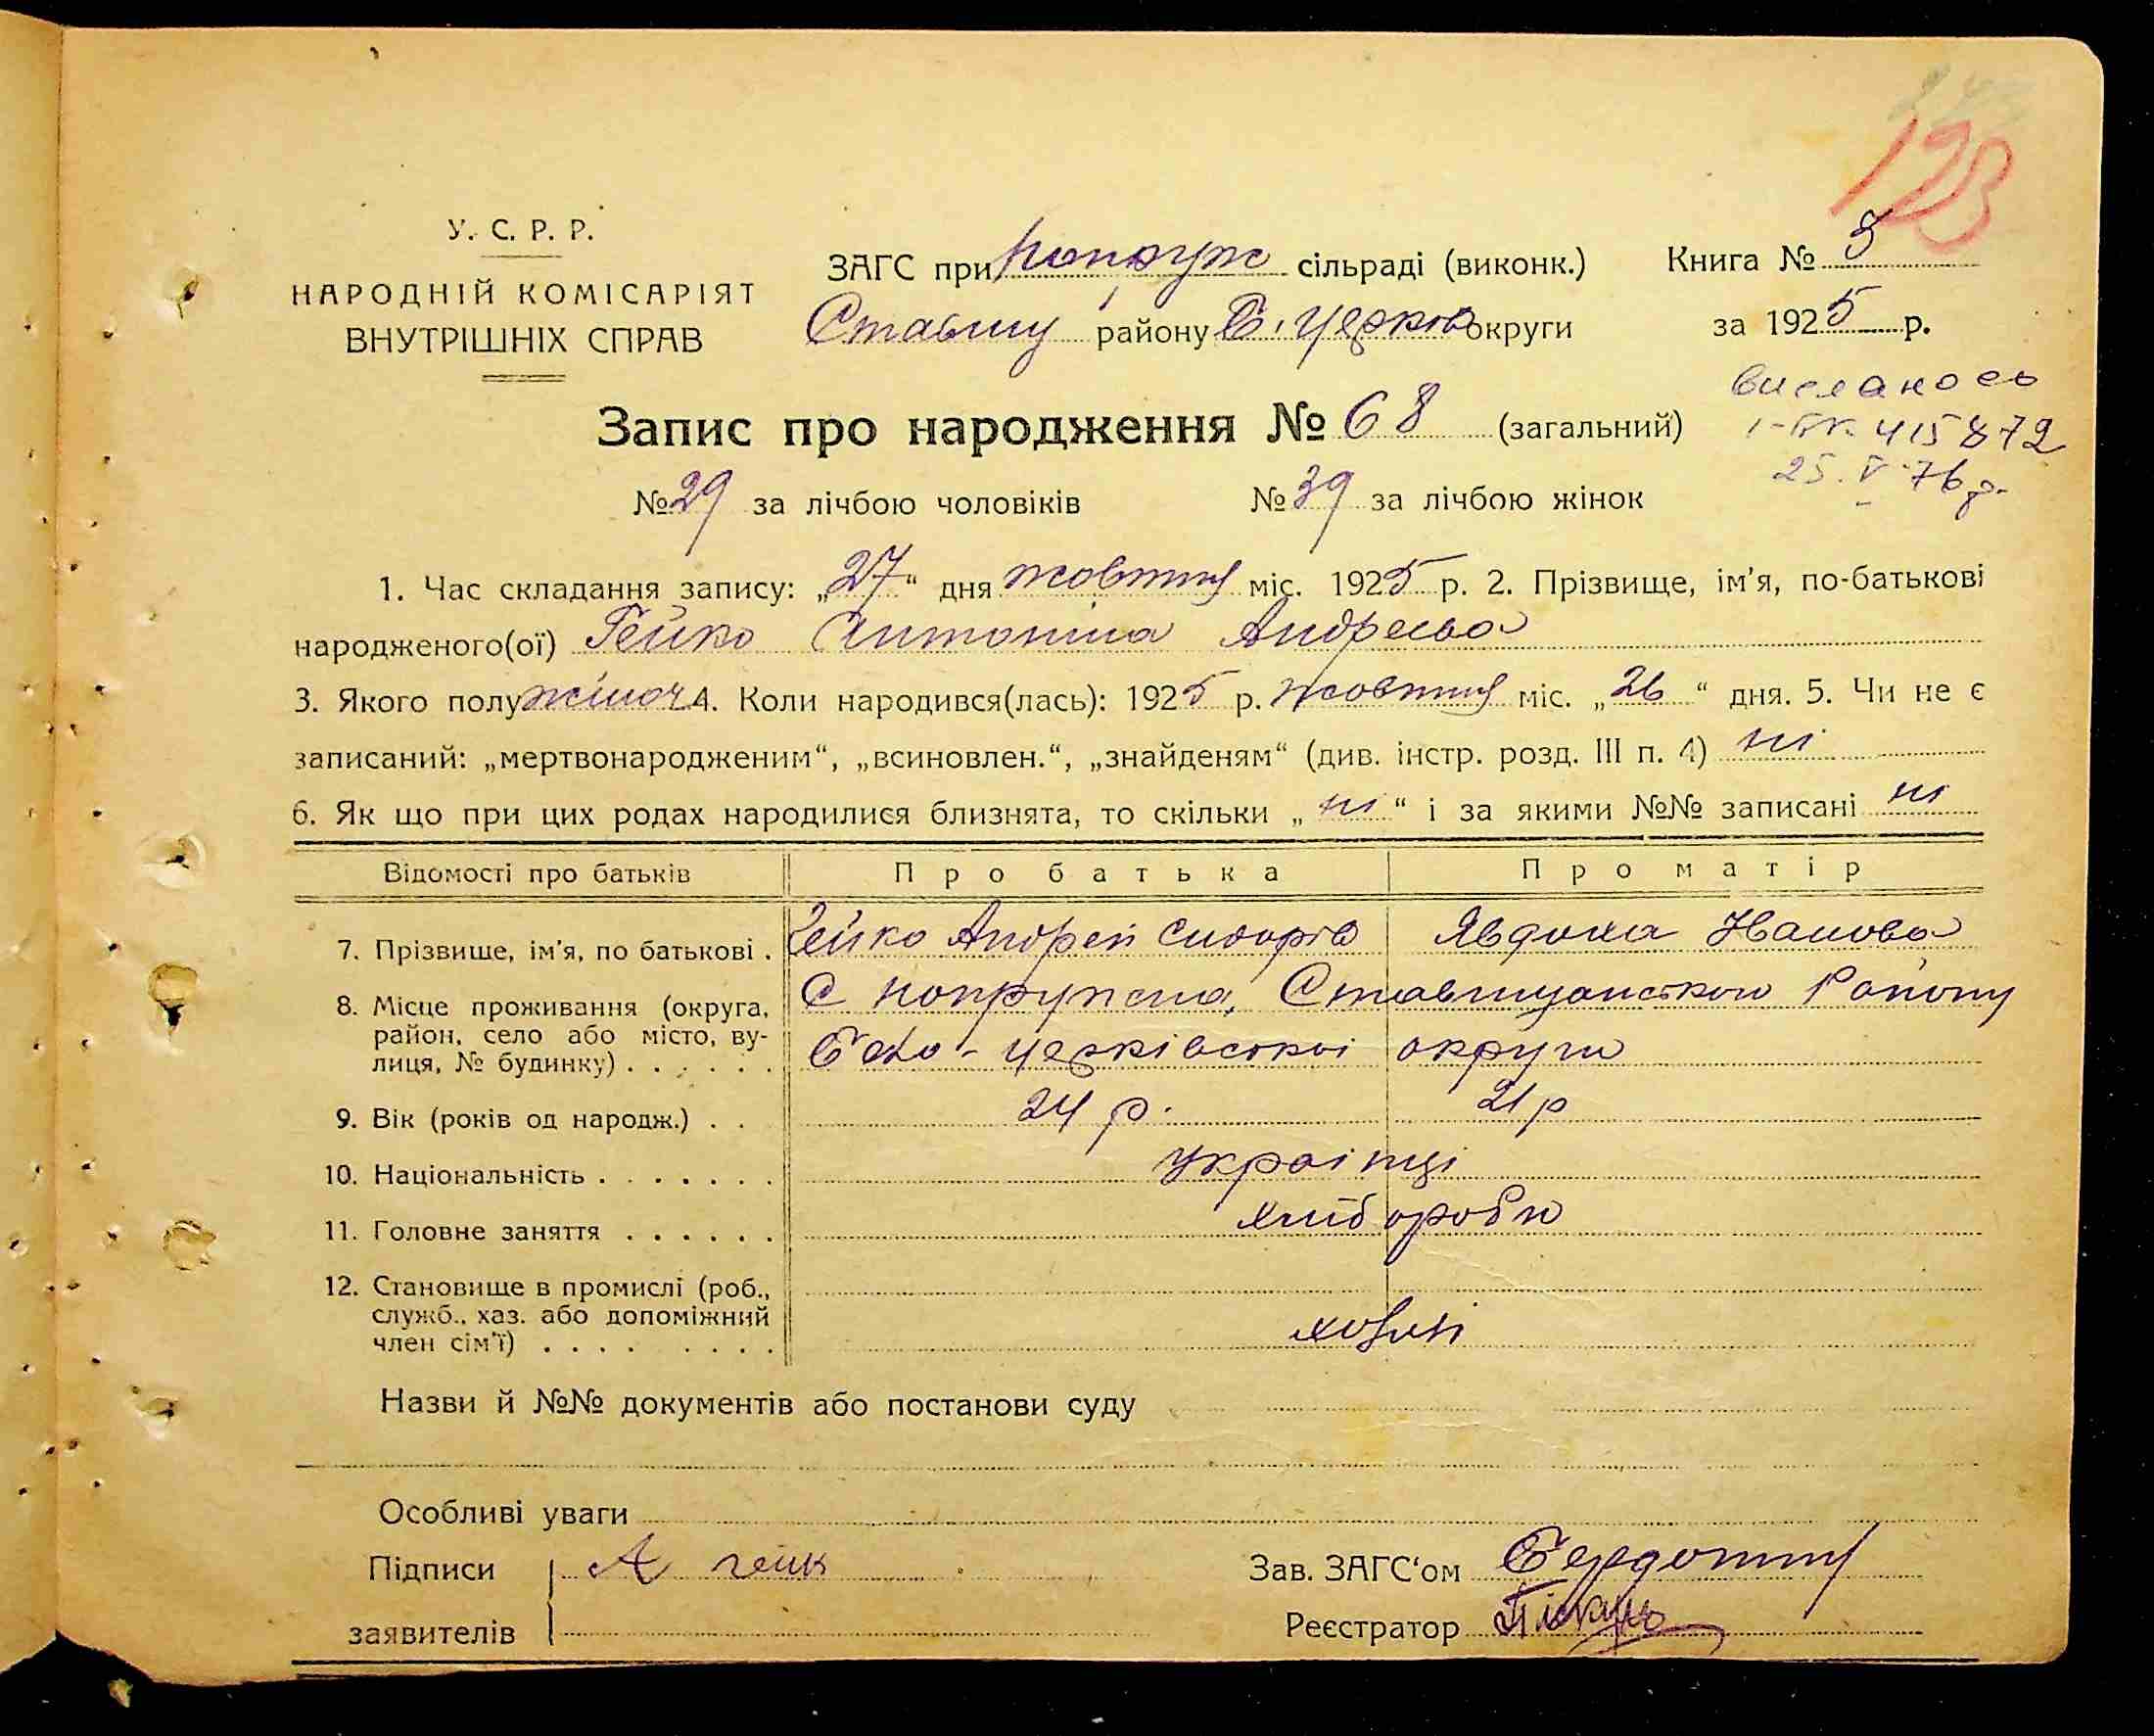 123
У. С. Р. Р.
НАРОДНІЙ КОМІСАРІЯТ
ВНУТРІШНІХ СПРАВ
ЗАГС при Попруж сільраді (виконк.) Книга № 3
Ставищ району Б. Церків округи за 1925 р.
Запис про народження № 68 (загальний)
выслано
415872
25. V 76 г.
№ 29 за лічбою чоловіків № 39 за лічбою жінок
1. Час складання запису: „27“ дня жовтня міс. 1925 р. 2. Прізвище, ім'я, по-батькові
народженого(ої) Гейко Антоніна Андреєва
3. Якого полу жіноч 4. Коли народився(лась): 1925 р. жовтня міс. „26“ дня. 5. Чи не є
записаний: „мертвонародженим“, „всиновлен.“, „знайденям“ (див. інстр. розд. III п. 4) ні
6. Як що при цих родах народилися близнята, то скільки „ні“ і за якими №№ записані ні
Відомості про батьків Про батька Про матір
7. Прізвище, ім'я, по батькові . Гейко Андрей Сидорів Явдоха Иванова
8. Місце проживання (округа, район, село або місто, вулиця, № будинку) . . . . . . С Попружна, Ставищанського Району
Біло-Церківської округи
9. Вік (років од народж.) . . 24 р. 21 р
10. Національність . . . . . . . українці
11. Головне заняття . . . . . . хліб ороби
12. Становище в промислі (роб., служб., хаз. або допоміжний член сім'ї) . . . . . . . . хозяї
Назви й №№ документів або постанови суду
Особливі уваги
Підписи А гейк Зав. ЗАГС'ом
заявителів Реєстратор